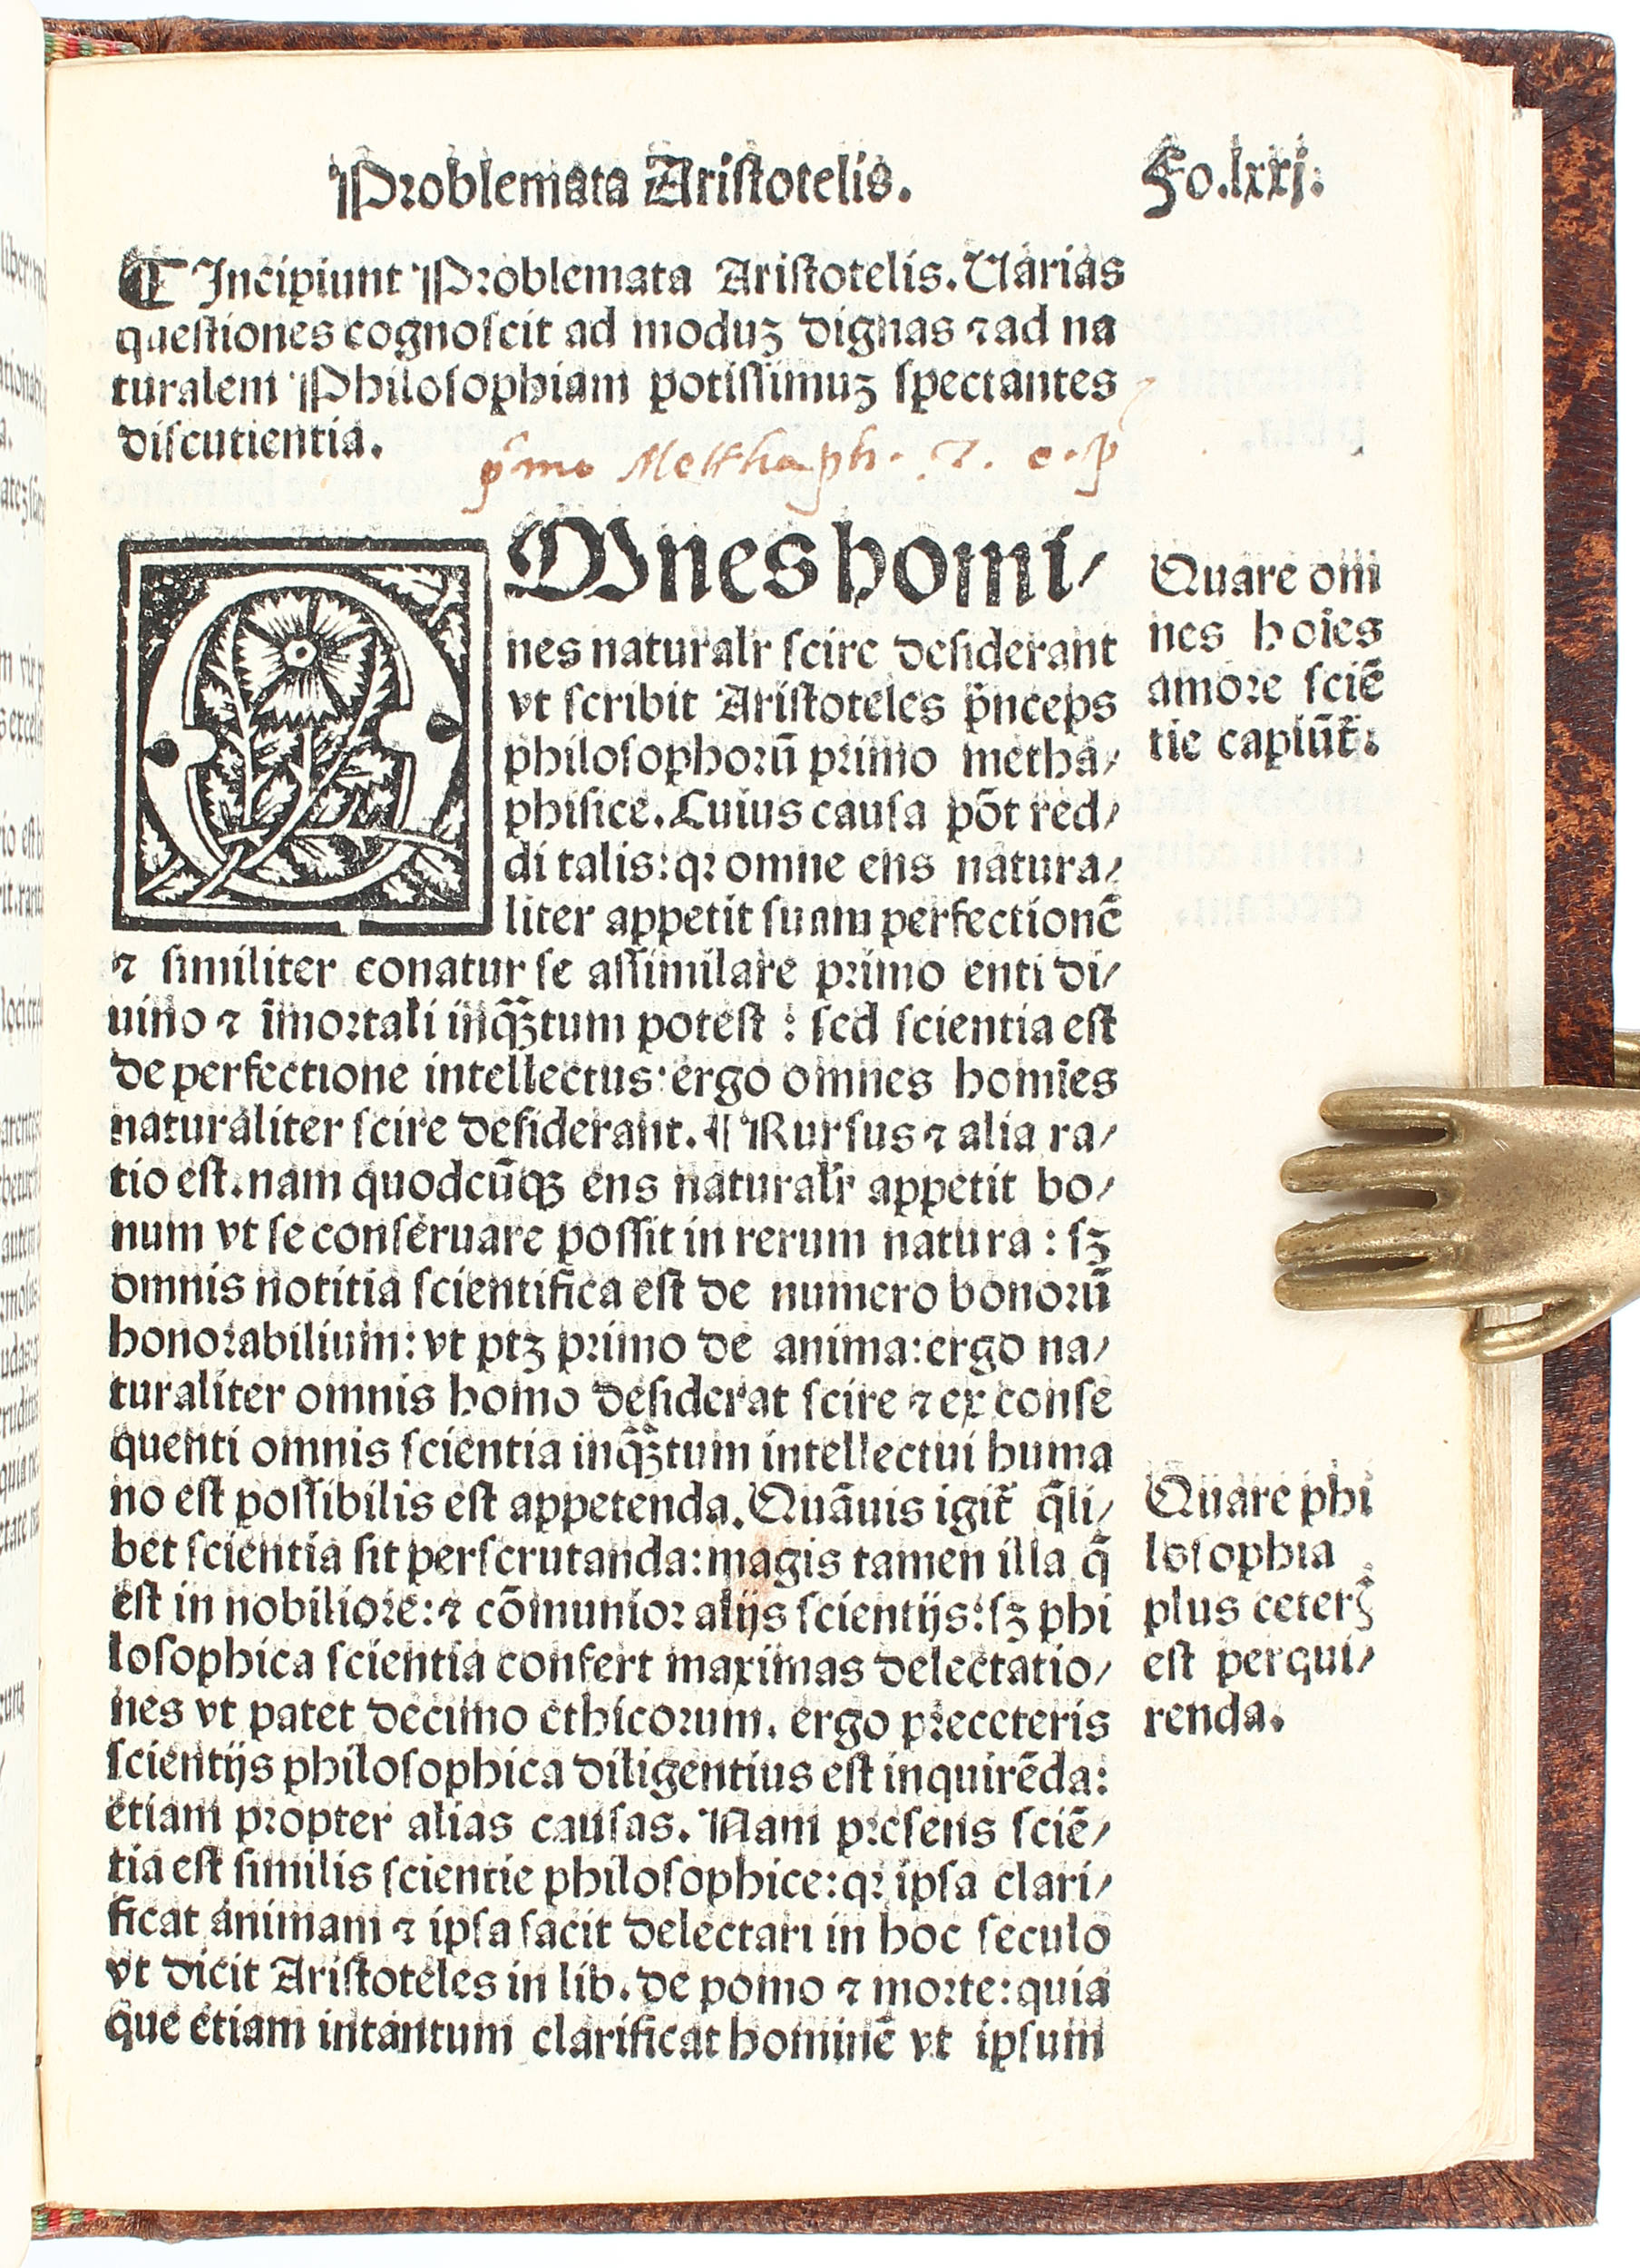 Problemata Aristotelis.
Fo.lxxj.
¶ Incipiunt Problemata Aristotelis. Uarias
questiones cognoscit ad moduʒ dignas ⁊ ad na
turalem Philosophiam potissimuʒ spectantes
discutientia.
pͥmo Metthaph.
OMnes homi/
nes naturalr scire desiderant
vt scribit Aristoteles p̄nceps
philosophorū primo metha/
phisice. Cuius causa pōt red/
di talis: qꝛ omne ens natura/
liter appetit suam perfectionē
⁊ similiter conatur se assimilare primo enti di/
uino ⁊ īmortali inqʒ̄tum potest : sed scientia est
de perfectione intellectus: ergo omnes homīes
naturaliter scire desiderant. ¶ Rursus ⁊ alia ra/
tio est. nam quodcūqʒ ens naturalr appetit bo/
num vt se conseruare possit in rerum natura : sʒ
omnis notitia scientifica est de numero bonorū
honorabilium: vt ptʒ primo de anima: ergo na/
turaliter omnis homo desiderat scire ⁊ ex conse
quenti omnis scientia inqʒ̄tum intellectui huma
no est possibilis est appetenda. Quāuis igit̄ q̄li/
bet scientia sit perscrutanda: magis tamen illa q̄
est in nobiliore: ⁊ cōmunior alijs scientijs: sʒ phi
losophica scientia confert maximas delectatio/
nes vt patet decimo ethicorum. ergo preceteris
scientijs philosophica diligentius est inquirēda:
etiam propter alias causas. Nam presens sciē/
tia est similis scientie philosophice: qꝛ ipsa clari/
ficat animam ⁊ ipsa facit delectari in hoc seculo
vt dicit Aristoteles in lib. de pomo ⁊ morte: quia
que etiam intantum clarificat hominē vt ipsum
Quare om
nes hoīes
amore sciē
tie capiūt̄.
Quare phi
losophia
plus ceterꝭ
est perqui/
renda.